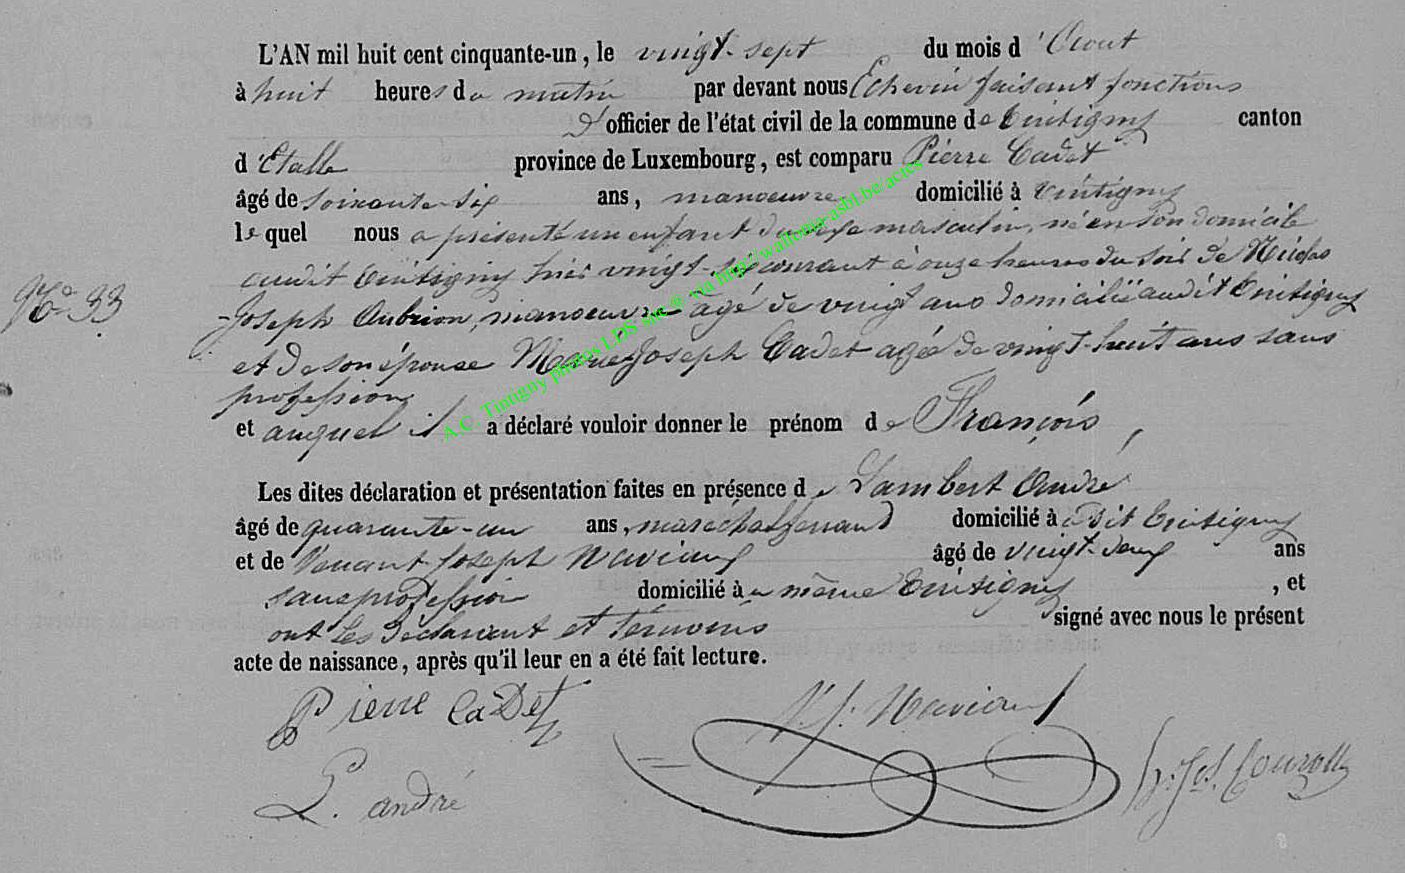 L'AN mil huit cent cinquante-un, le vingt-sept du mois d'Aout
à huit heures du matin par devant nous Echevin faisant fonctions
d'officier de l'état civil de la commune de Tintigny canton
d'Etalle province de Luxembourg, est comparu Pierre Cadet
âgé de soixante-six ans, manoeuvre, domicilié à Tintigny
lequel nous a présenté un enfant du sexe masculin, né en son domicile
audit Tintigny hier vingt-six courant à onze heures du soir de Nicolas
No 33
Joseph Aubrion, manoeuvre âgé de vingt ans domicilié audit Tintigny
et de son épouse Marie Joseph Cadet agée de vingt-huit ans sans
profession
et auquel il a déclaré vouloir donner le prénom de François,
Les dites déclaration et présentation faites en présence de Lambert André
âgé de quarante-un ans, maréchal ferrand domicilié à dit Tintigny
et de Venant Joseph âgé de vingt-deux ans
sans profession domicilié à même Tintigny, et
ont les déclarant et témoins signé avec nous le présent
acte de naissance, après qu'il leur en a été fait lecture.
Pierre CaDet
L. andré
A.C. Tintigny photos LDS site® via http://wallonia-asbl.be/actes